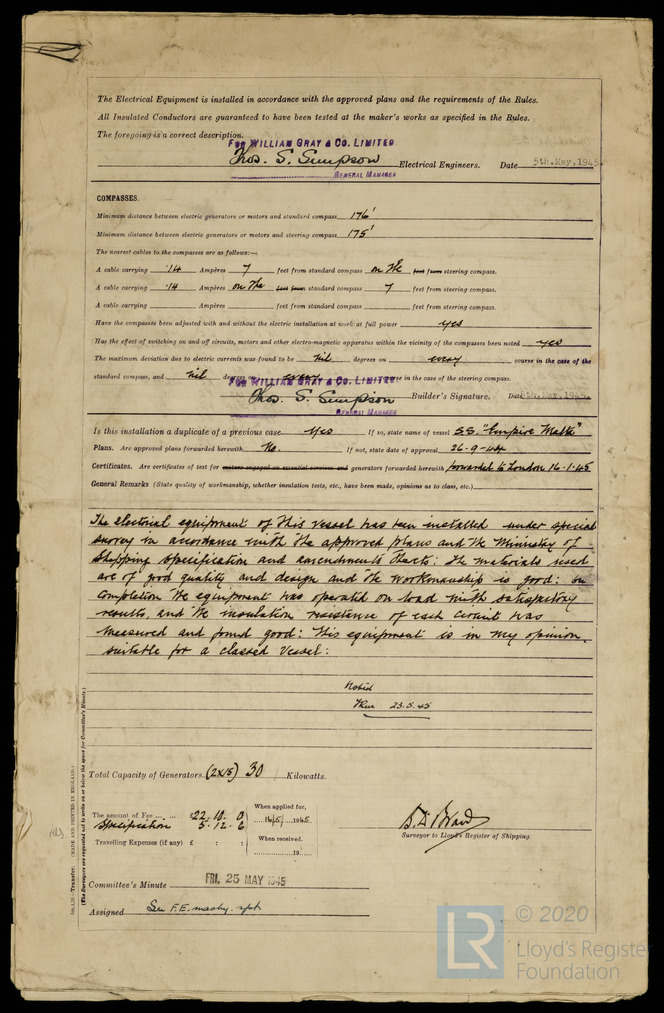 The Electrical Equipment is installed in accordance with the approved plans and the requirements of the Rules.
All Insulated Conductors are guaranteed to have been tested at the maker's works as specified in the Rules.
The foregoing is a correct description.
FOR WILLIAM GRAY & CO. LIMITED
Thos. S. Simpson Electrical Engineers. Date 5th.May,1945
GENERAL MANAGER
COMPASSES.
Minimum distance between electric generators or motors and standard compass 176'
Minimum distance between electric generators or motors and steering compass 175'
The nearest cables to the compasses are as follows:—
A cable carrying .14 Ampères 7 feet from standard compass on the feet from steering compass.
A cable carrying .14 Ampères on the feet from standard compass 7 feet from steering compass.
A cable carrying Ampères feet from standard compass feet from steering compass.
Have the compasses been adjusted with and without the electric installation at work at full power yes
Has the effect of switching on and off circuits, motors and other electro-magnetic apparatus within the vicinity of the compasses been noted yes
The maximum deviation due to electric currents was found to be nil degrees on every course in the case of the
standard compass, and nil degrees on every course in the case of the steering compass.
FOR WILLIAM GRAY & CO. LIMITED
Thos. S. Simpson Builder's Signature. Date 5th.May,1945.
GENERAL MANAGER
Is this installation a duplicate of a previous case yes If so, state name of vessel S.S. "Empire Malta"
Plans. Are approved plans forwarded herewith No. If not, state date of approval 26-9-44
Certificates. Are certificates of test for motors engaged on essential services and generators forwarded herewith forwarded to London 16-1-45
General Remarks (State quality of workmanship, whether insulation tests, etc., have been made, opinions as to class, etc.)
The electrical equipment of this vessel has been installed under special
survey in accordance with the approved plans and the Ministry of
Shipping specification and amendments thereto. The materials used
are of good quality and design and the workmanship is good: on
completion the equipment was operated on load with satisfactory
results, and the insulation resistance of each circuit was
measured and found good: This equipment is in my opinion,
suitable for a classed vessel:
Noted
23.5.45
Total Capacity of Generators (2x15) 30 Kilowatts.
The amount of Fee ... ... £22 : 10 : 0
Specification 5 . 12 . 6
Travelling Expenses (if any) £ : :
When applied for,
14/5/ 1945
When received,
19
Surveyor to Lloyd's Register of Shipping.
Committee's Minute FRI. 25 MAY 1945
Assigned See F.E. machy. rpt
Transfer. (MADE AND PRINTED IN ENGLAND.)
(The Surveyors are requested not to write on or below the space for Committee's Minute.)
LR © 2020
Lloyd's Register
Foundation